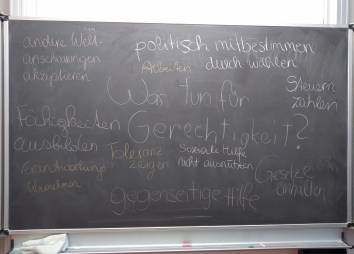 andere Welt-
anschauungen
akzeptieren
politisch mitbestimmen
durch wählen
Arbeiten
Steuern
zahlen
Was tun für
Gerechtigkeit?
Fähigkeiten
ausbilden
Toleranz
zeigen
Soziale Hilfe
nicht ausnützen
Verantwortung
übernehmen
Gesetze
einhalten
gegenseitige Hilfe